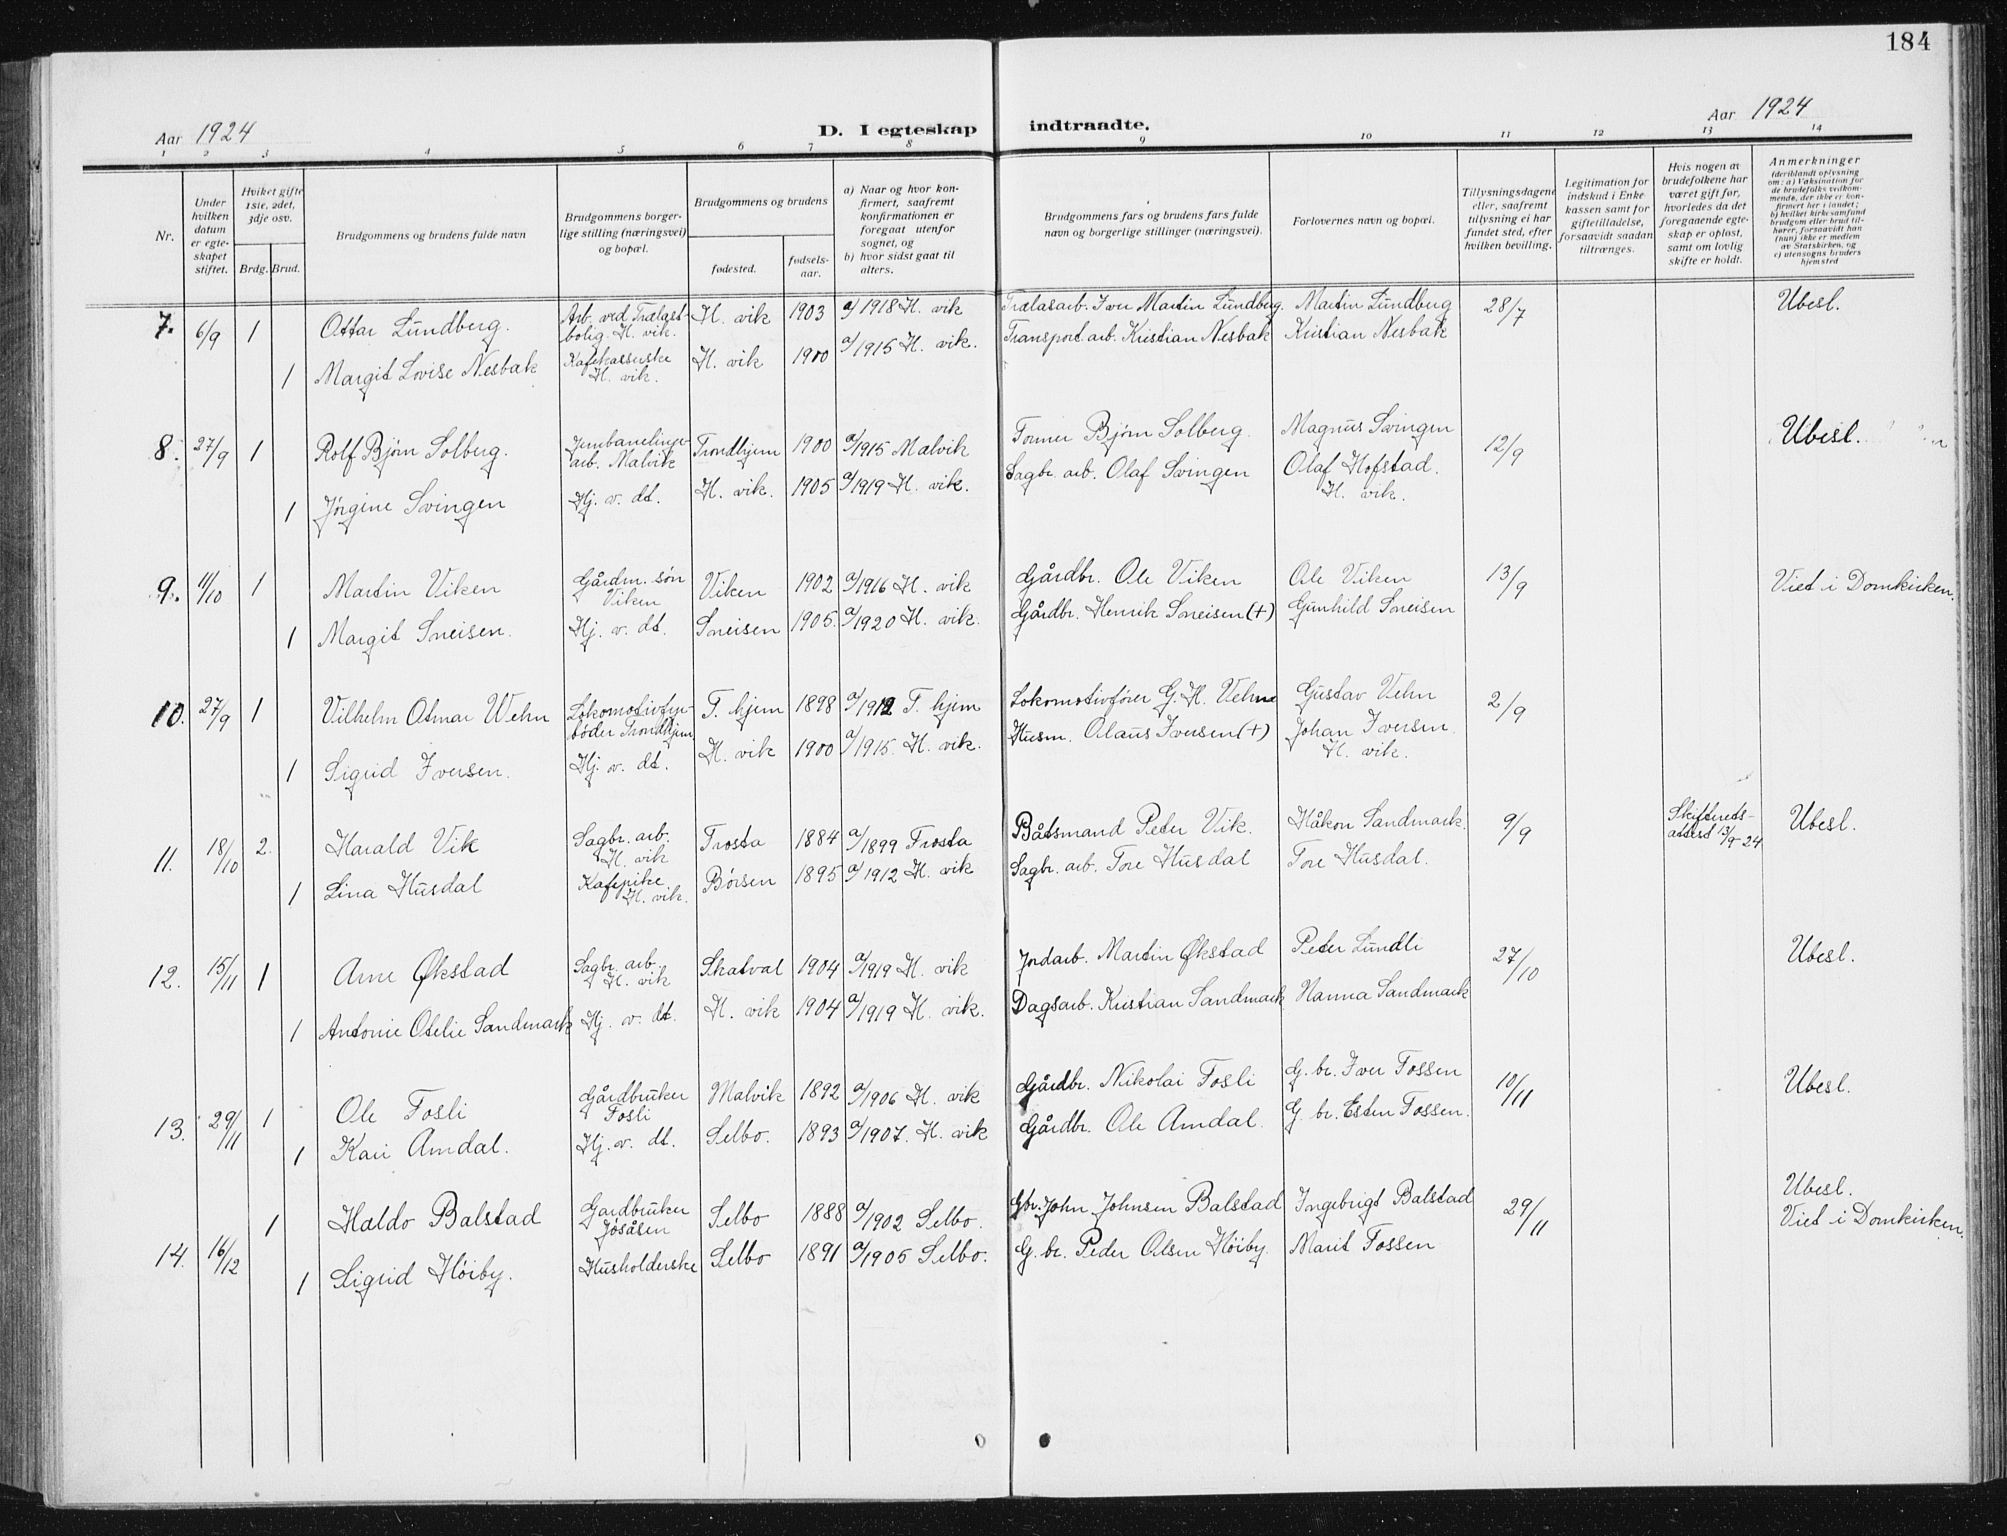 184
Aar 1924
D. I egteskap indtraadte.
Aar 1924
1 2 3 4 5 6 7 8 9 10 11 12 13 14
Nr.
Under hvilken datum er egteskapet stiftet.
Hvilket gifte 1ste, 2det, 3dje osv.
Brdg. Brud.
Brudgommens og brudens fulde navn
Brudgommens borgerlige stilling (næringsvei) og bopæl.
Brudgommens og brudens
fødested.
fødselsaar.
a) Naar og hvor konfirmert, saafremt konfirmationen er foregaat utenfor sognet, og
b) hvor sidst gaat til alters.
Brudgommens fars og brudens fars fulde navn og borgerlige stillinger (næringsvei).
Forlovernes navn og bopæl.
Tillysningsdagene eller, saafremt tillysning ei har fundet sted, efter hvilken bevilling.
Legitimation for indskud i Enkekassen samt for giftetilladelse, forsaavidt saadan tiltrænges.
Hvis nogen av brudefolkene har været gift før, hvorledes da det foregaaende egteskap er opløst, samt om lovlig skifte er holdt.
Anmerkninger (deriblandt oplysning om: a) Vaksination for de brudefolks vedkommende, der ikke er konfirmert her i landet; b) hvilket kirkesamfund brudgom eller brud tilhører, forsaavidt han (hun) ikke er medlem av Statskirken, og c) utensogns bruders hjemsted
7. 6/9 1 Ottar Lundberg. Arb. ved Trælast- bolig H. vik. H. vik 1903 a/1918 H. vik Trælasarb. Iver Martin Lundberg. Martin Lundberg 28/7 Ubesl.
1 Margit Lovise Nesbak Kafekasserske H. vik. H. vik 1900 a/1915 H. vik. Transport. arb. Kristian Nesbak Kristian Nesbak
8. 27/9 1 Rolf Bjørn Solberg. Jernbanelinje- arb. Malvik Trondhjem 1900 a/1915 Malvik Former Bjørn Solberg. Magnus Svingen 12/9 Ubesl.
1 Jørgine Svingen Hj. v. dt. H. vik. 1905 a/1919 H. vik. Sagbr. arb. Olaf Svingen Olaf Hofstad. H. vik.
9. 11/10 1 Martin Viken Gårdm. søn Viken Viken 1902 a/1916 H. vik Gårdbr. Ole Viken Ole Viken 13/9 Viet i Domkirken.
1 Margit Sneisen. Hj. v. dt. Sneisen 1905. a/1920 H. vik. Gårdbr. Henrik Sneisen (+) Gunhild Sneisen
10. 27/9 1 Vilhelm Otmar Wehn Lokomotivfyr- bøder Trondhjem T. hjem 1898 a/1912 T. hjem Lokomotivfører G. H. Vehn Gustav Vehn 2/9
1 Sigrid Iversen. Hj. v. dt. H. vik 1900 a/1915. H. vik. Husm. Olaus Iversen (+) Johan Iversen H. vik.
11. 18/10 2. Harald Vik Sagbr. arb. H. vik Frosta 1884 a/1899 Frosta Båtsmand Peter Vik. Håkon Sandmark. 9/9 Skifterets- attest 13/9-24 Ubesl.
1 Lina Husdal Kafepike. H. vik. Børsen 1895 a/1912 H. vik Sagbr. arb. Tore Husdal Tore Husdal.
12. 15/11 1 Arne Økstad Sagbr. arb. H. vik Skatval 1904 a/1919 H. vik Jordarb. Martin Økstad Peter Lundli 27/10 Ubesl.
1 Antonie Otelie Sandmark Hj. v. dt. H. vik 1904 a/1919 H. vik. Dagsarb. Kristian Sandmark Hanna Sandmark
13. 29/11 1 Ole Fosli Gårdbruker Fosli Malvik 1892 a/1906 H. vik Gårdbr. Nikolai Fosli G. br. Iver Fossen 10/11 Ubesl.
1 Kari Amdal. Hj. v. dt. Selbo. 1893 a/1907. H. vik Gårdbr. Ole Amdal. G. br. Esten Fossen.
14. 16/12 1 Haldo Balstad Gardbruker Jøsåsen Selbo 1888 a/1902 Selbo. Gbr. John Johnsen Balstad Ingebrigt Balstad 29/11 Ubesl. Viet i Domkirken.
1 Sigrid Høiby. Husholderske Selbo 1891 a/1905 Selbo. G. br. Peder Olsen Høiby. Marit Fossen